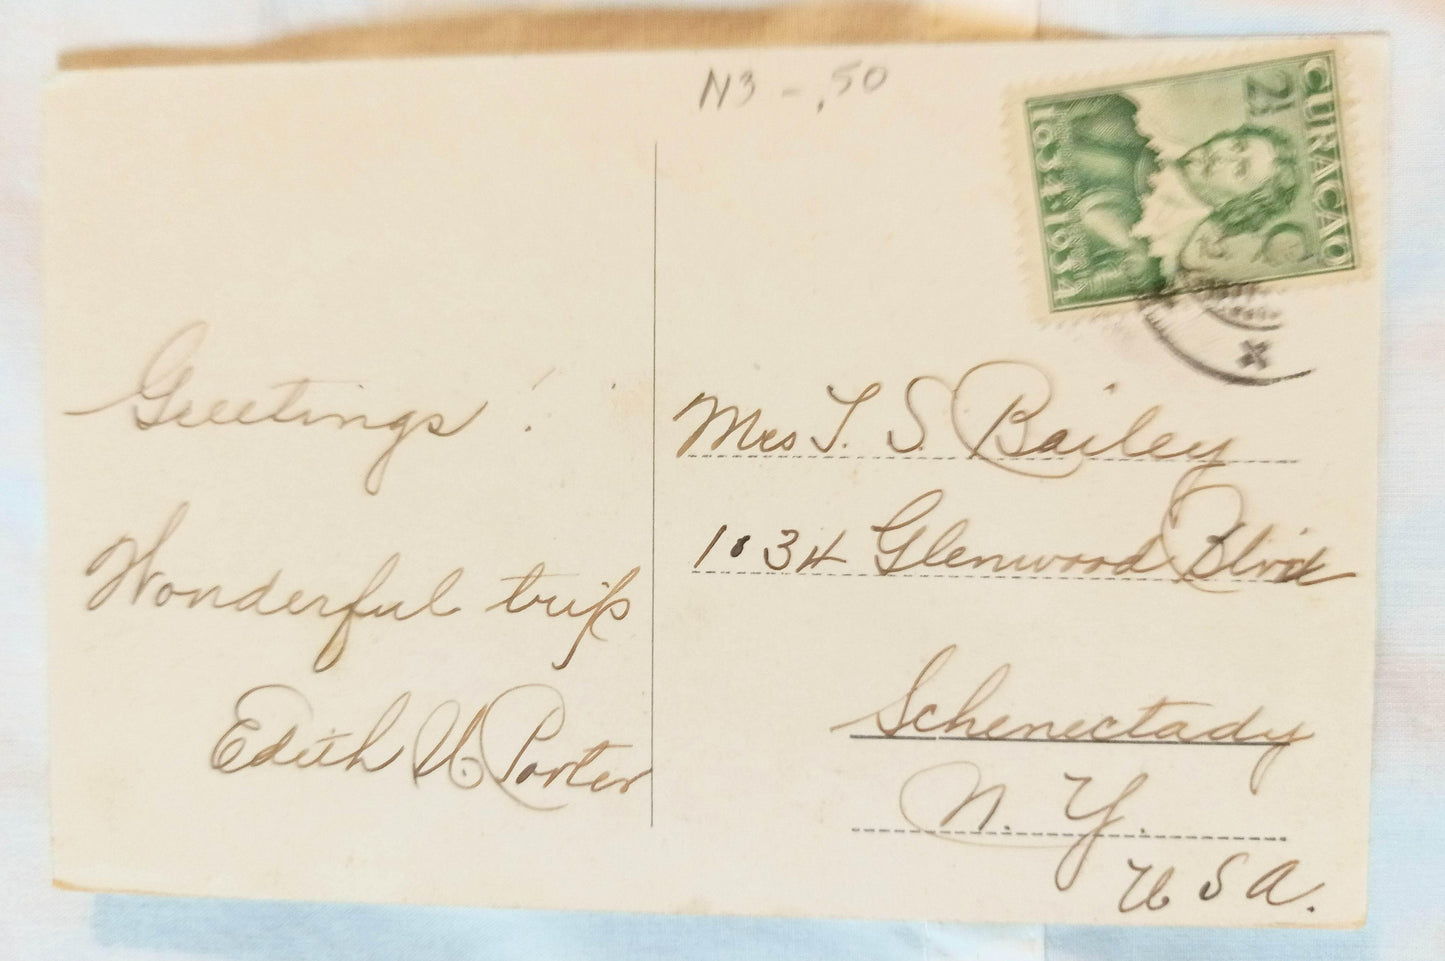 N3 - .50
CURACAO
2½
1634 1934
Greetings!
Wonderful trip
Edith U. Porter
Mrs T. S. Bailey
1034 Glenwood Blvd
Schenectady
N. Y.
U S A.